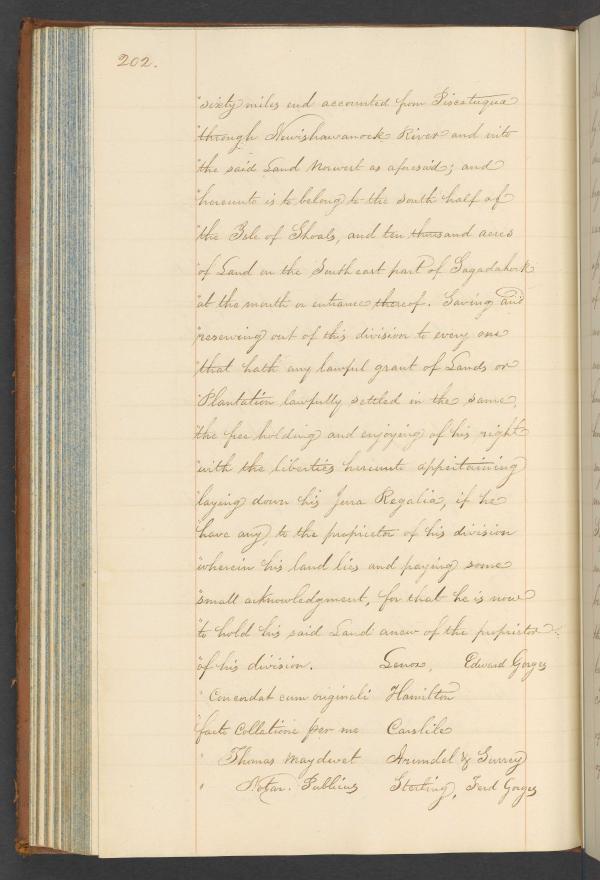 202.
"sixty miles end accounted from Piscatuqua
"through Newishawanock River and into
"the said Land Norwest as aforesaid; and
"hereunto is to belong to the south half of
"the Isle of Shoals, and ten thousand acres
"of Land on the South east part of Sagadahock
"at the mouth or entrance thereof. Saving and
"reserving out of this division to every one
"that hath any lawful grant of Lands or
"Plantation lawfully settled in the same,
"the free holding and enjoying of his right
"with the liberties hereunto appertaining
"laying down his Jura Regalia, if he
"have any, to the proprietor of his division
"wherein his land lies and paying some
"small acknowledgment, for that he is now
"to hold his said Land anew of the proprietor
"of his division. Lenox, Edward Gorges
" Concordat cum originali Hamilton
"facto Collatione per me Carslile
" Thomas Maydwet Arundel & Surrey
" Notar. Publicus Sterling, Ferd Gorges